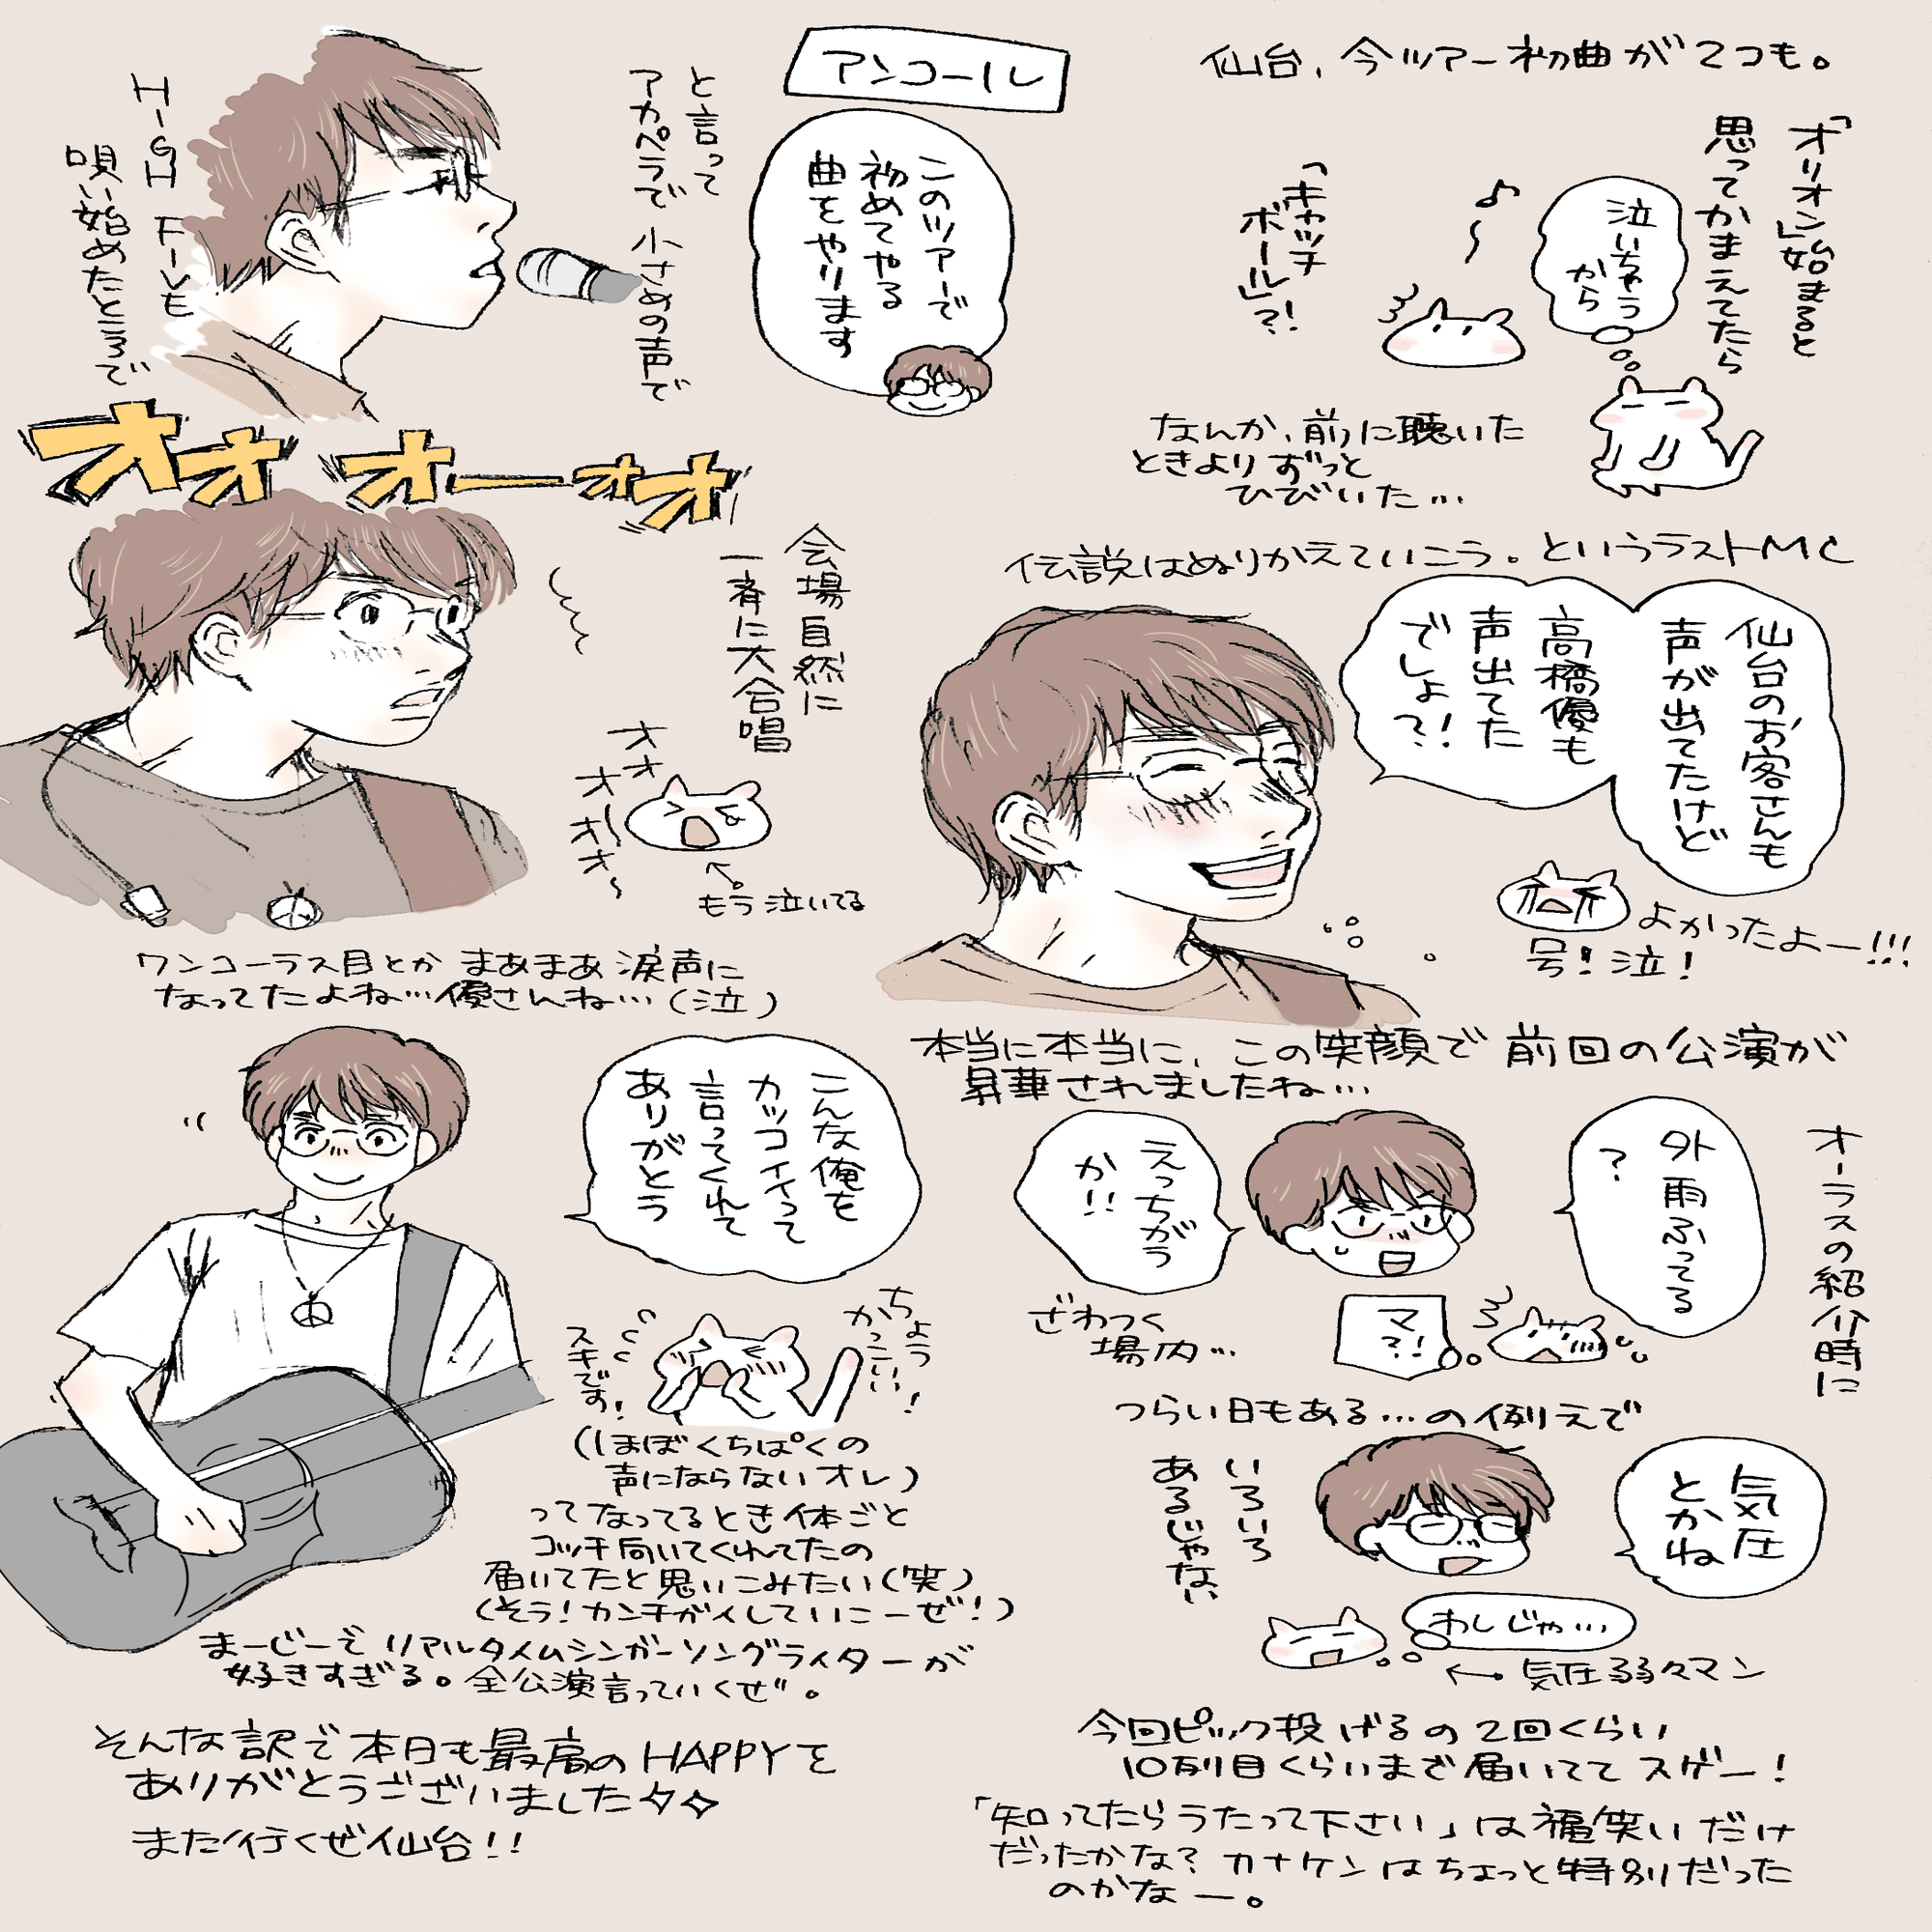 仙台、今ツアー初曲が2つも。
「オリオン」始まると
思ってかまえてたら
泣いちゃう
から
♪〜
「キャッチ
ボール」?!
なんか、前に聴いた
ときよりずっと
ひびいた…
伝説はぬりかえていこう。というラストMC
仙台のお客さんも
声が出てたけど
高橋優も
声出てた
でしょ?!
よかったよー!!!
号!泣!
本当に本当に、この笑顔で前回の公演が
昇華されましたね…
オーラスの紹介時に
外雨ふってる
?
えっちがう
か!!
マ
?!
ざわつく
場内…
つらい日もある…の例えで
気圧
とかね
いろいろ
あるじゃない
わしじゃ…
←気圧弱々マン
今回ピック投げるの2回くらい
10列目くらいまで届いててスゲー!
「知ってたらうたって下さい」は福笑いだけ
だったかな?カナケンはちょっと特別だった
のかなー。
アンコール
このツアーで
初めてやる
曲をやります
と言って
アカペラで小さめの声で
HIGH FIVE
唄い始めたところで
オォオーォオ
会場自然に
一斉に大合唱
オオ
オオ〜オ〜
←もう泣いてる
ワンコーラス目とかまあまあ涙声に
なってたよね…優さんね…(泣)
こんな俺を
カッコイイって
言ってくれて
ありがとう
ちょう
かっこいい!
スキです!
(ほぼくちぱくの
声にならないオレ)
ってなってるとき体ごと
コッチ向いてくれてたの
届いてたと思いこみたい(笑)
(そう!カンチガイしていこーぜ!)
まーじーでリアルタイムシンガーソングライターが
好きすぎる。全公演言っていくぜ。
そんな訳で本日も最高のHAPPYを
ありがとうございました
また行くぜ仙台!!